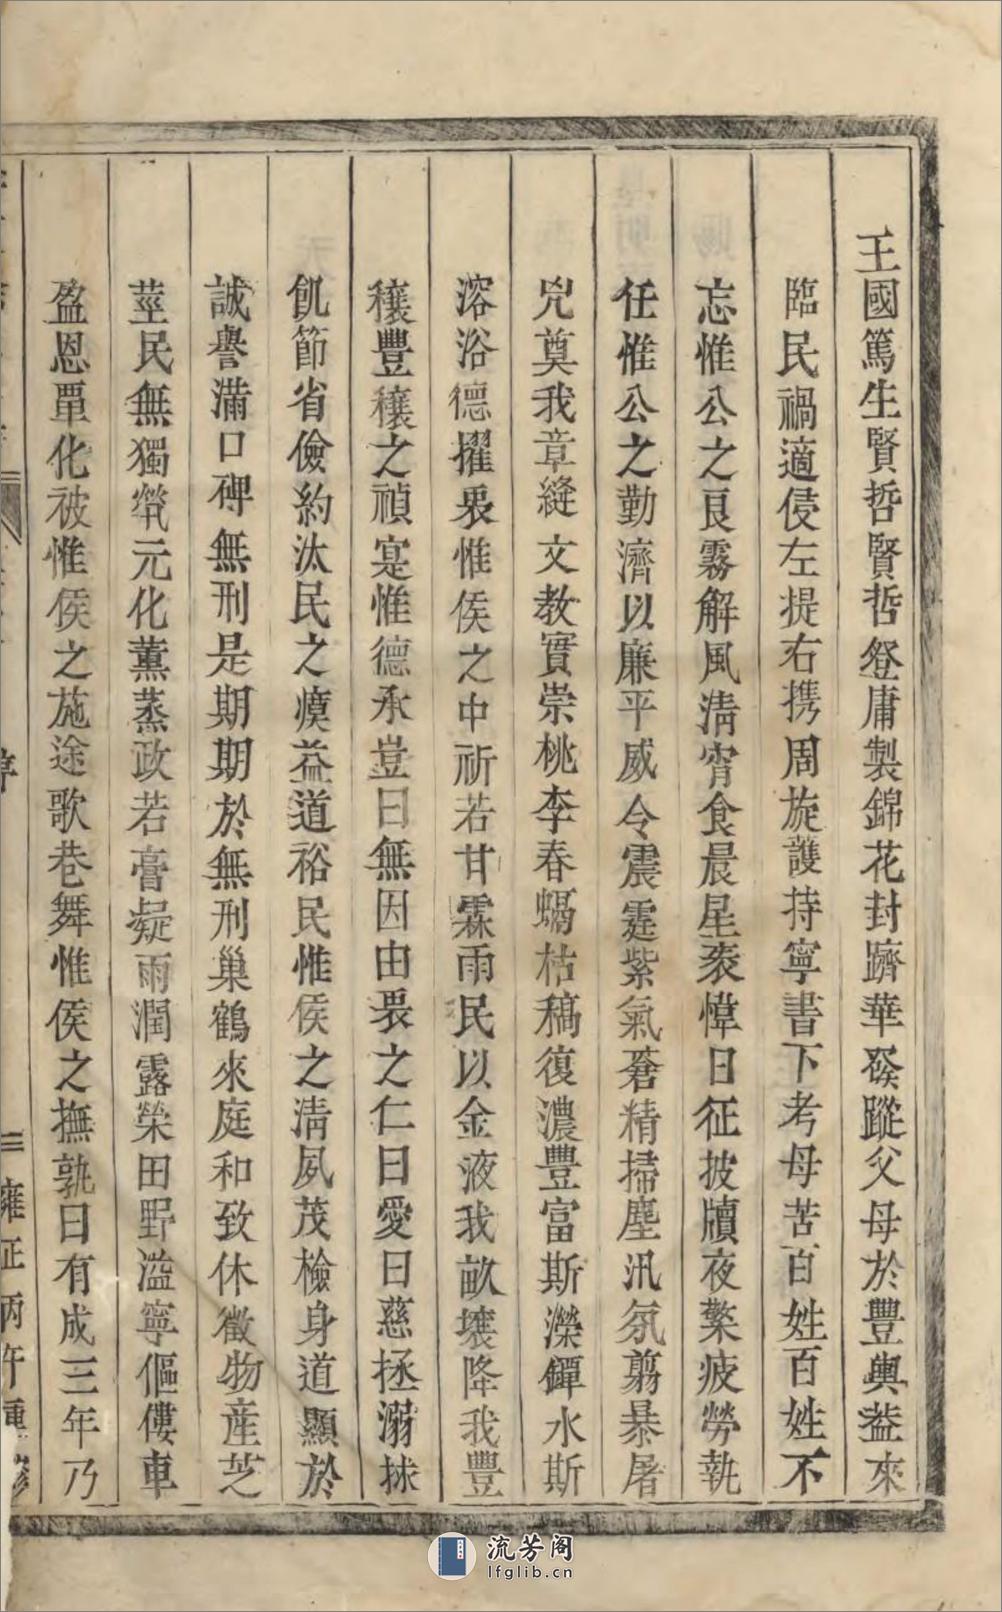 王國篤生賢哲賢哲登庸製錦花封躋華發蹤父母於豐輿益來
臨民禍適侵左提右携周旋護持寧書下考毋苦百姓百姓不
忘惟公之良霧解風淸宵食晨星褰幃日征披牘夜繁疲勞孰
任惟公之勤濟以廉平威令震霆紫氣磨精掃塵汛氛翦暴屠
兇奠我章縫文教實崇桃李春蝸枯稿復濃豐富斯濼鐔水斯
溶浴德擢衷惟侯之中祈若甘霖雨民以金液我畝壤降我豐
穰豐穰之禎寔惟德承豈曰無因由畏之仁曰愛曰慈拯溺捄
飢節省儉約汰民之瘼益道裕民惟侯之淸夙茂檢身道顯於
誠譽滿口碑無刑是期期於無刑巢鶴來庭和致休徵物產芝
莖民無獨煢元化薰蒸政若膏凝雨潤露榮田野溢寧傴僂車
盈恩覃化被惟侯之施途歌巷舞惟侯之撫孰曰有成三年乃
序
三
雍正丙午重修
流芳阁
lfglib.cn